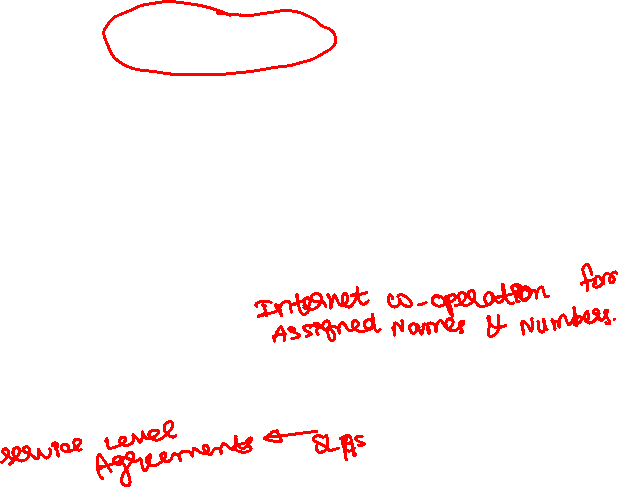 Internet co-operation for
Assigned Names & Numbers.
Service Level
Agreements ← SLAs